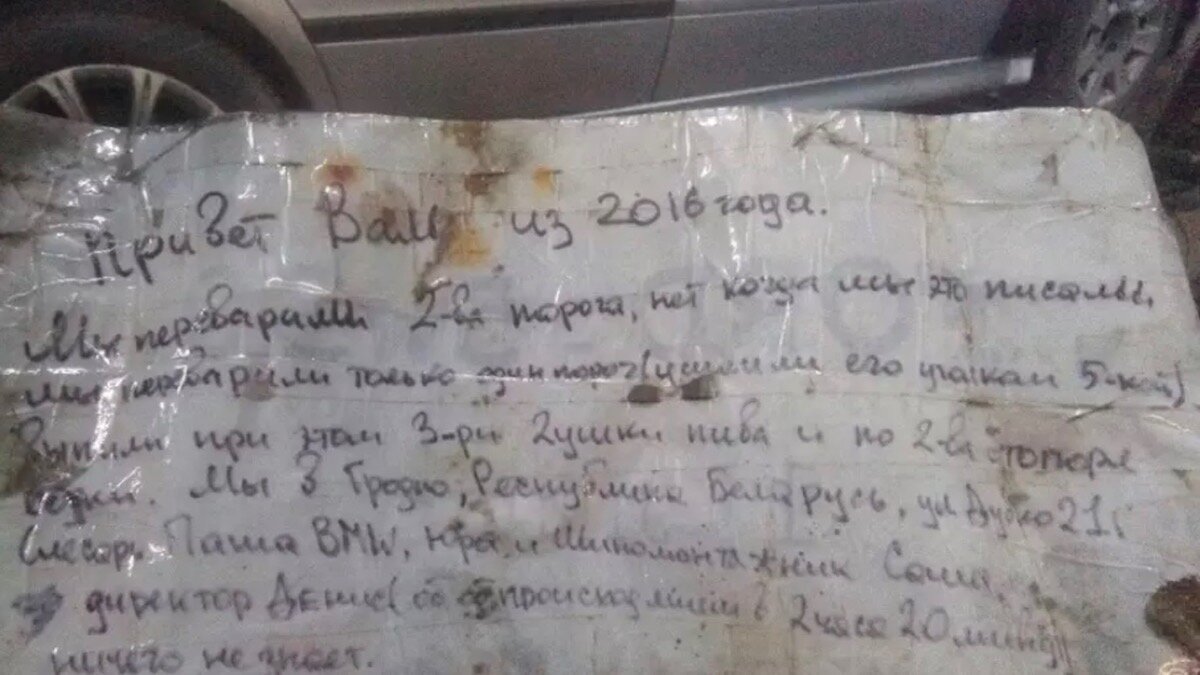 Привет Вам из 2016 года.
Мы переварили 2-ва порога, нет когда мы это писали,
мы переварили только один порог (усилили его уголкам 5-кой)
Выпили при этом 3-ри 2ушки пива и по 2-ва стопоря
водки. Мы в Гродно, Республика Беларусь, ул Дубко 21,
Слесарь Паша BMW, Юра, и Шиномонтажник Саша,
директор Денис (об происходящем в 2 часа 20 минут)
ничего не знает.